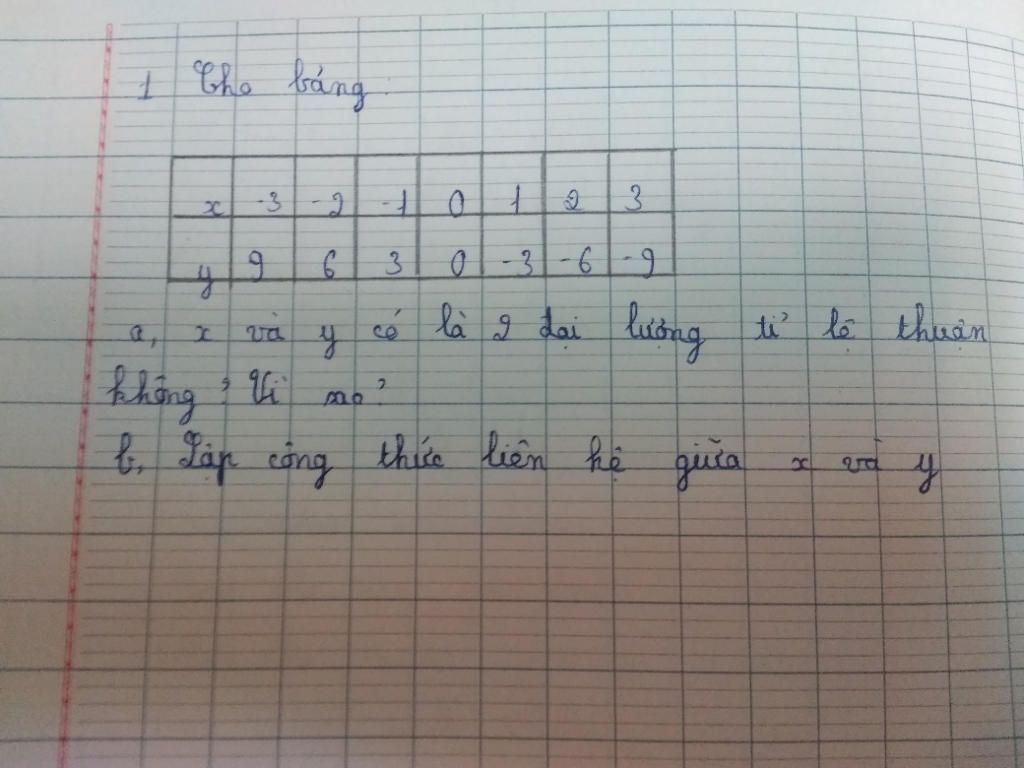 1 Cho bảng:
x -3 -2 -1 0 1 2 3
y 9 6 3 0 -3 -6 -9
a, x và y có là 2 đại lượng tỉ lệ thuận
không? Vì sao?
b, Lập công thức liên hệ giữa x và y